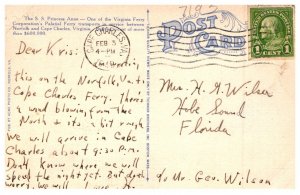 The S. S. Princess Anne — One of the Virginia Ferry
Corporation's Palatial Ferry transports in service between
Norfolk and Cape Charles, Virginia
than $600,000.
POST
CARD
CAPE CHARLES
FEB 5
4-PM
1
Dear Kris:
this on the Norfolk, 
Cape Charles Ferry. There's
a wind blowing from the
North & its a bit rough
we will arrive in Cape
Charles about 9:30 P.M.
Don't know where we will
spend the night yet. But don't
worry. we will
Mrs. H. G. Wilson
Hobe Sound
Florida
c/o Mr. Geo. Wilson